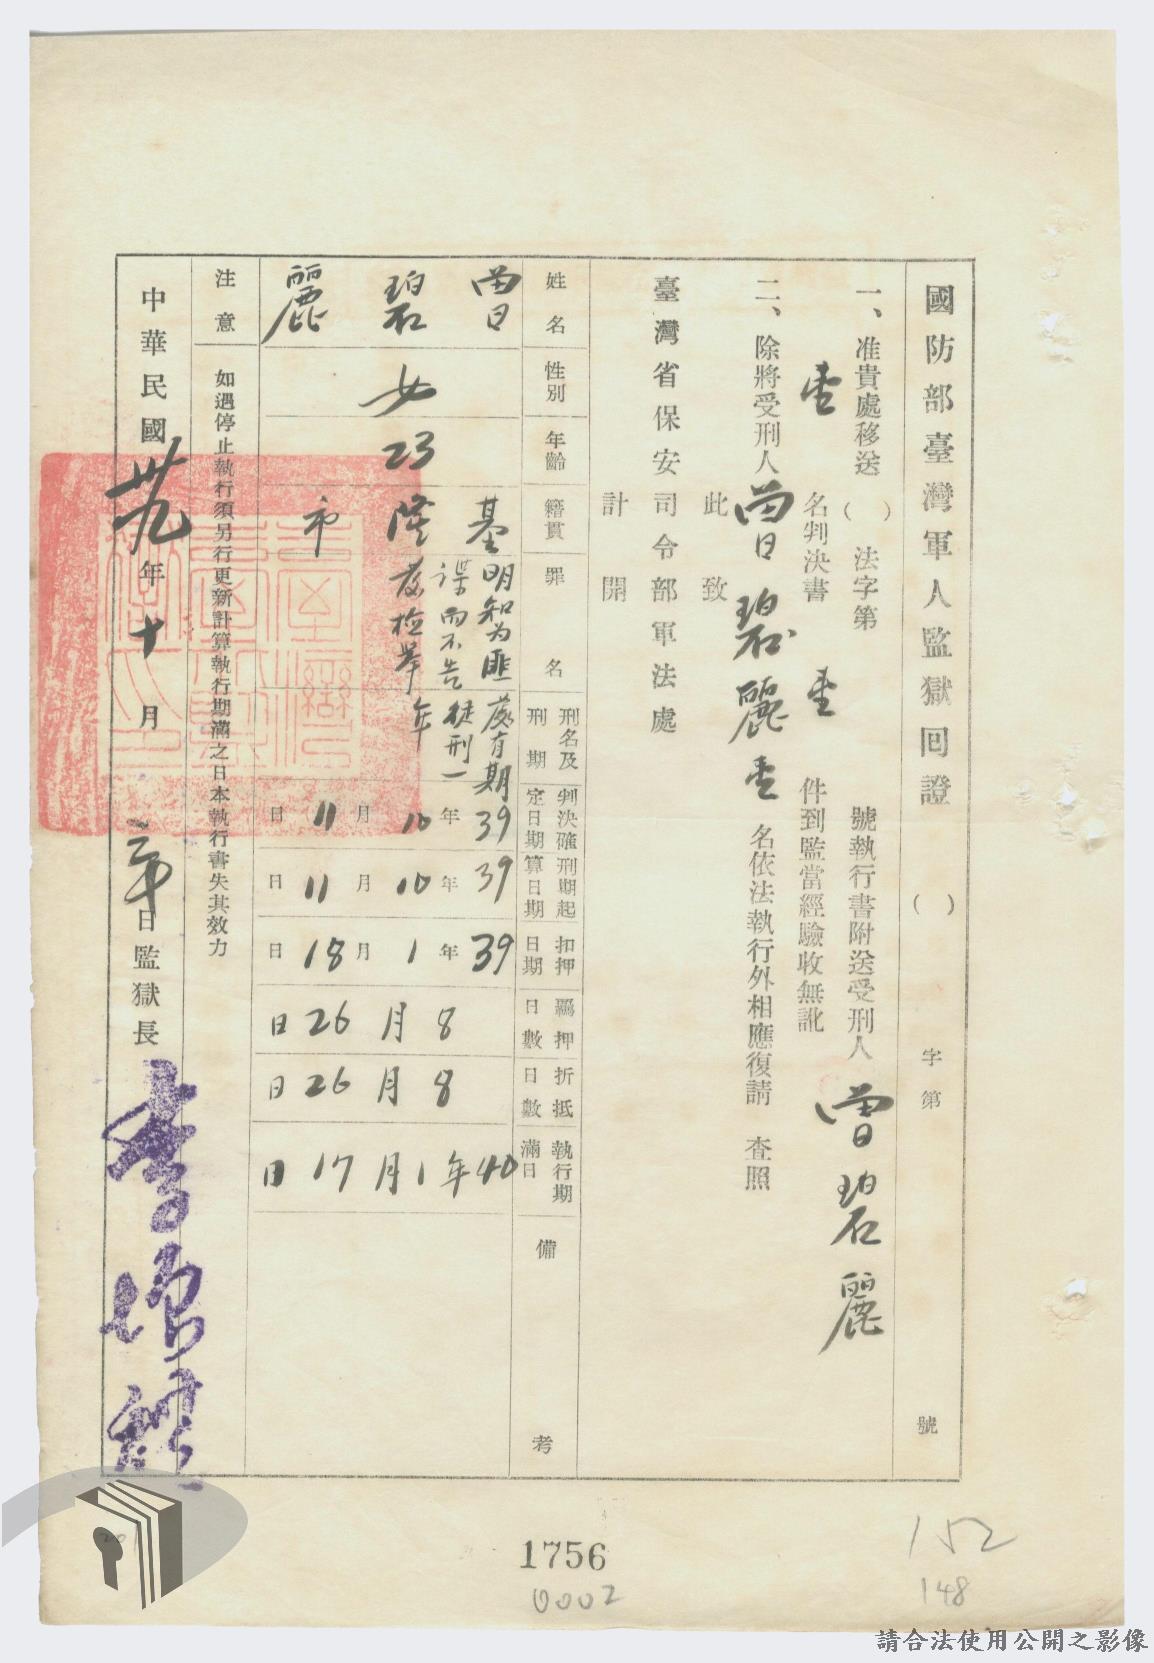 國防部臺灣軍人監獄回證 ( ) 字第 號
一、准貴處移送( )法字第 號執行書附送受刑人曾碧麗
壹名判決書壹件到監當經驗收無訛
二、除將受刑人曾碧麗壹名依法執行外相應復請 查照
此致
臺灣省保安司令部軍法處
計開
姓名 曾碧麗
性別 女
年齡 23
籍貫 基隆市
罪名 明知為匪諜而不告密檢舉
刑名及刑期 處有期徒刑一年
判決確定日期 39年10月11日
刑期起算日期 39年10月11日
扣押日期 39年1月18日
羈押日數 8月26日
折抵日數 8月26日
執行期滿日 40年1月17日
備考
注意 如遇停止執行須另行更新計算執行期滿之日本執行書失其效力
中華民國卅九年十月 日監獄長
1756
0002
152
148
201
請合法使用公開之影像